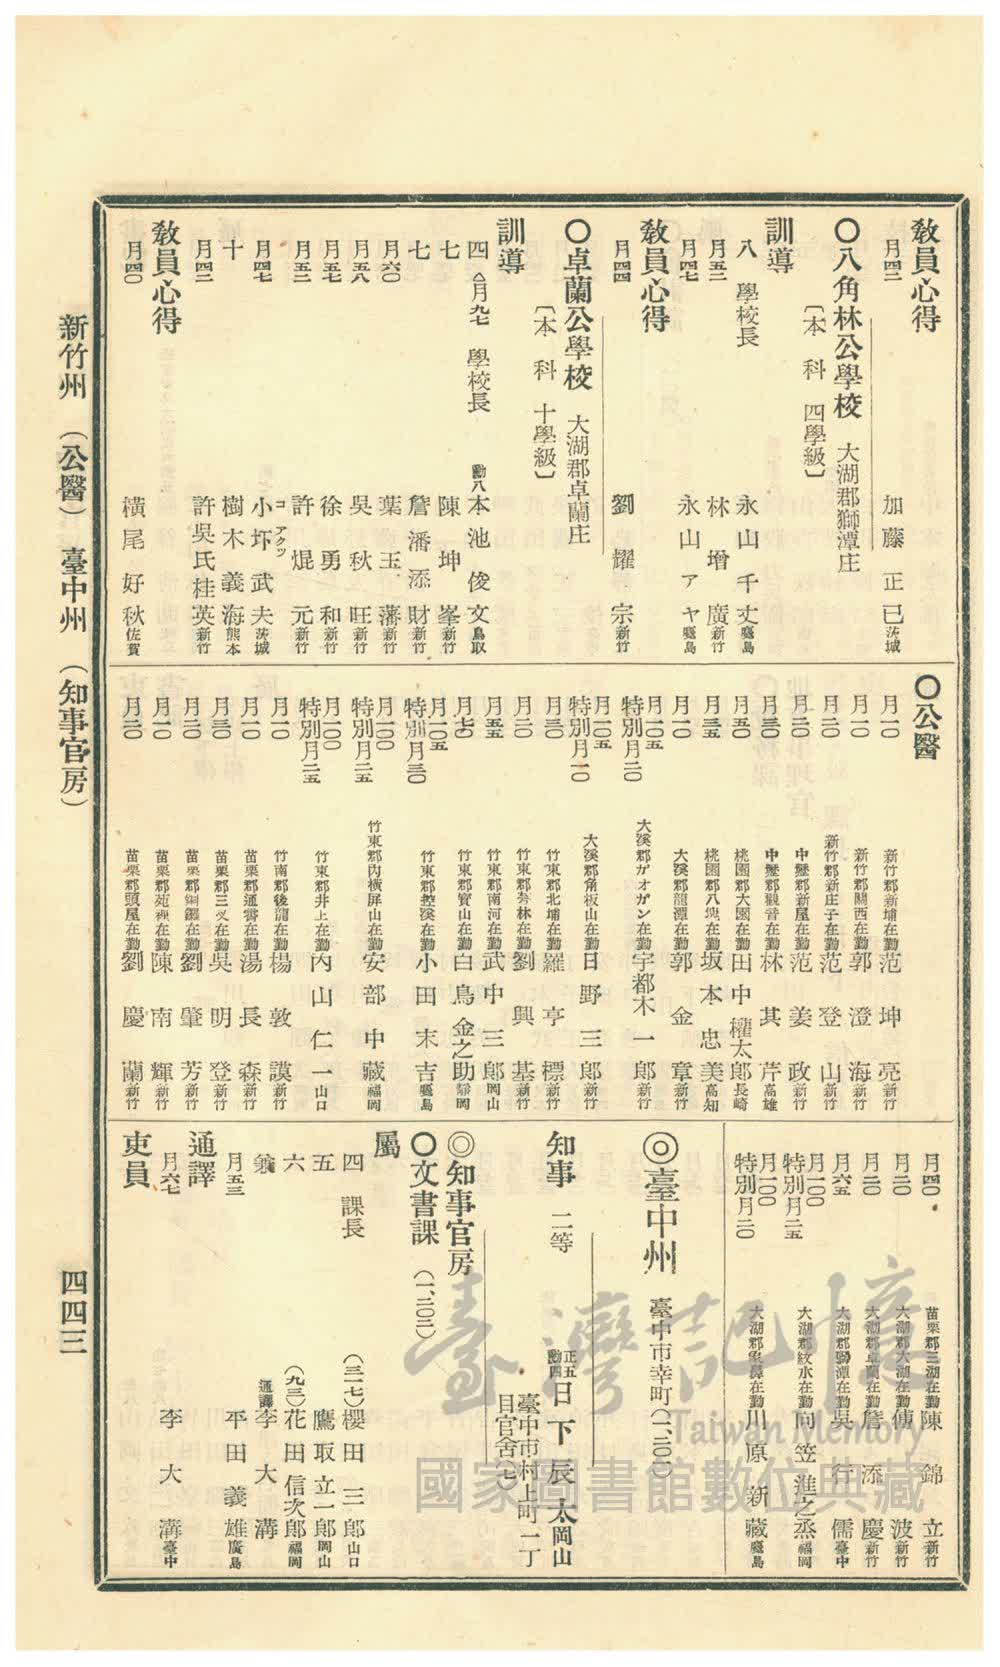 教員心得
月四二 加藤正巳 茨城
〇八角林公學校 大湖郡獅潭庄
〔本科 四學級〕
訓導
八 學校長 永山千丈 鹿兒島
月五二 林增廣 新竹
月四七 永山アヤ 鹿兒島
教員心得
月四四 劉耀宗 新竹
〇卓蘭公學校 大湖郡卓蘭庄
〔本科 十學級〕
訓導
四 △月九七 學校長 勳八 本池俊文 鳥取
七 陳坤峯 新竹
七 詹潘添財 新竹
月六〇 葉玉藩 新竹
月五八 吳秋旺 新竹
月五七 徐勇和 新竹
月五二 許焜元 新竹
月四七 小圷武夫 茨城
コアクツ
十 樹木義海 熊本
月四二 許吳氏桂英 新竹
教員心得
月四〇 橫尾好秋 佐賀
〇公醫
月一〇 新竹郡新埔在勤 范坤亮 新竹
月一〇 新竹郡關西在勤 郭澄海 新竹
月二〇 新竹郡新庄子在勤 范登山 新竹
月二〇 中壢郡新屋在勤 范姜政 新竹
月三〇 中壢郡觀音在勤 林其芹 高雄
月五〇 桃園郡大園在勤 田中權太郎 長崎
月三五 桃園郡八塊在勤 坂本忠美 高知
月一〇 大溪郡龍潭在勤 郭金章 新竹
月一〇五
特別月二〇 大溪郡ガオガン在勤 宇都木一郎 新竹
月一〇五
特別月一〇 大溪郡角板山在勤 日野三郎 新竹
月三〇 竹東郡北埔在勤 羅亨標 新竹
月二〇 竹東郡芎林在勤 劉興基 新竹
月五五 竹東郡南河在勤 武中三郎 岡山
月七〇 竹東郡寶山在勤 白鳥金之助 靜岡
月一〇五
特別月三〇 竹東郡控溪在勤 小田末吉 鹿兒島
月一〇〇
特別月二五 竹東郡內橫屏山在勤 安部中藏 福岡
月一〇〇
特別月二五 竹東郡井上在勤 內山仁一 山口
月一〇 竹南郡後龍在勤 楊敦謨 新竹
月一〇 苗栗郡通霄在勤 湯長森 新竹
月三〇 苗栗郡三叉在勤 吳明登 新竹
月二〇 苗栗郡銅鑼在勤 劉肇芳 新竹
月一〇 苗栗郡苑裡在勤 陳南輝 新竹
月二〇 苗栗郡頭屋在勤 劉慶蘭 新竹
月四〇 苗栗郡三湖在勤 陳錦立 新竹
月二〇 大湖郡大湖在勤 傅波 新竹
月二〇 大湖郡卓蘭在勤 詹添慶 新竹
月六五 大湖郡獅潭在勤 吳行儒 臺中
月一〇〇
特別月二五 大湖郡紋水在勤 向笠進之丞 福岡
月一〇〇
特別月二〇 大湖郡象鼻在勤 川原新藏 鹿兒島
◎臺中州 臺中市幸町(一、二〇〇)
知事 二等 正五 勳四 日下辰太 岡山
臺中市村上町二丁
目官舍(七)
◎知事官房
〇文書課 (一、二〇二)
屬
四 課長 (三一七)櫻田三郎 山口
五 鷹取立一郎 岡山
六 (九三)花田信次郎 福岡
通譯 李大溝
月五三 平田義雄 廣島
通譯
月六七 李大溝 臺中
吏員
新竹州 (公醫) 臺中州 (知事官房)
四四三
臺灣記憶
Taiwan Memory
國家圖書館數位典藏